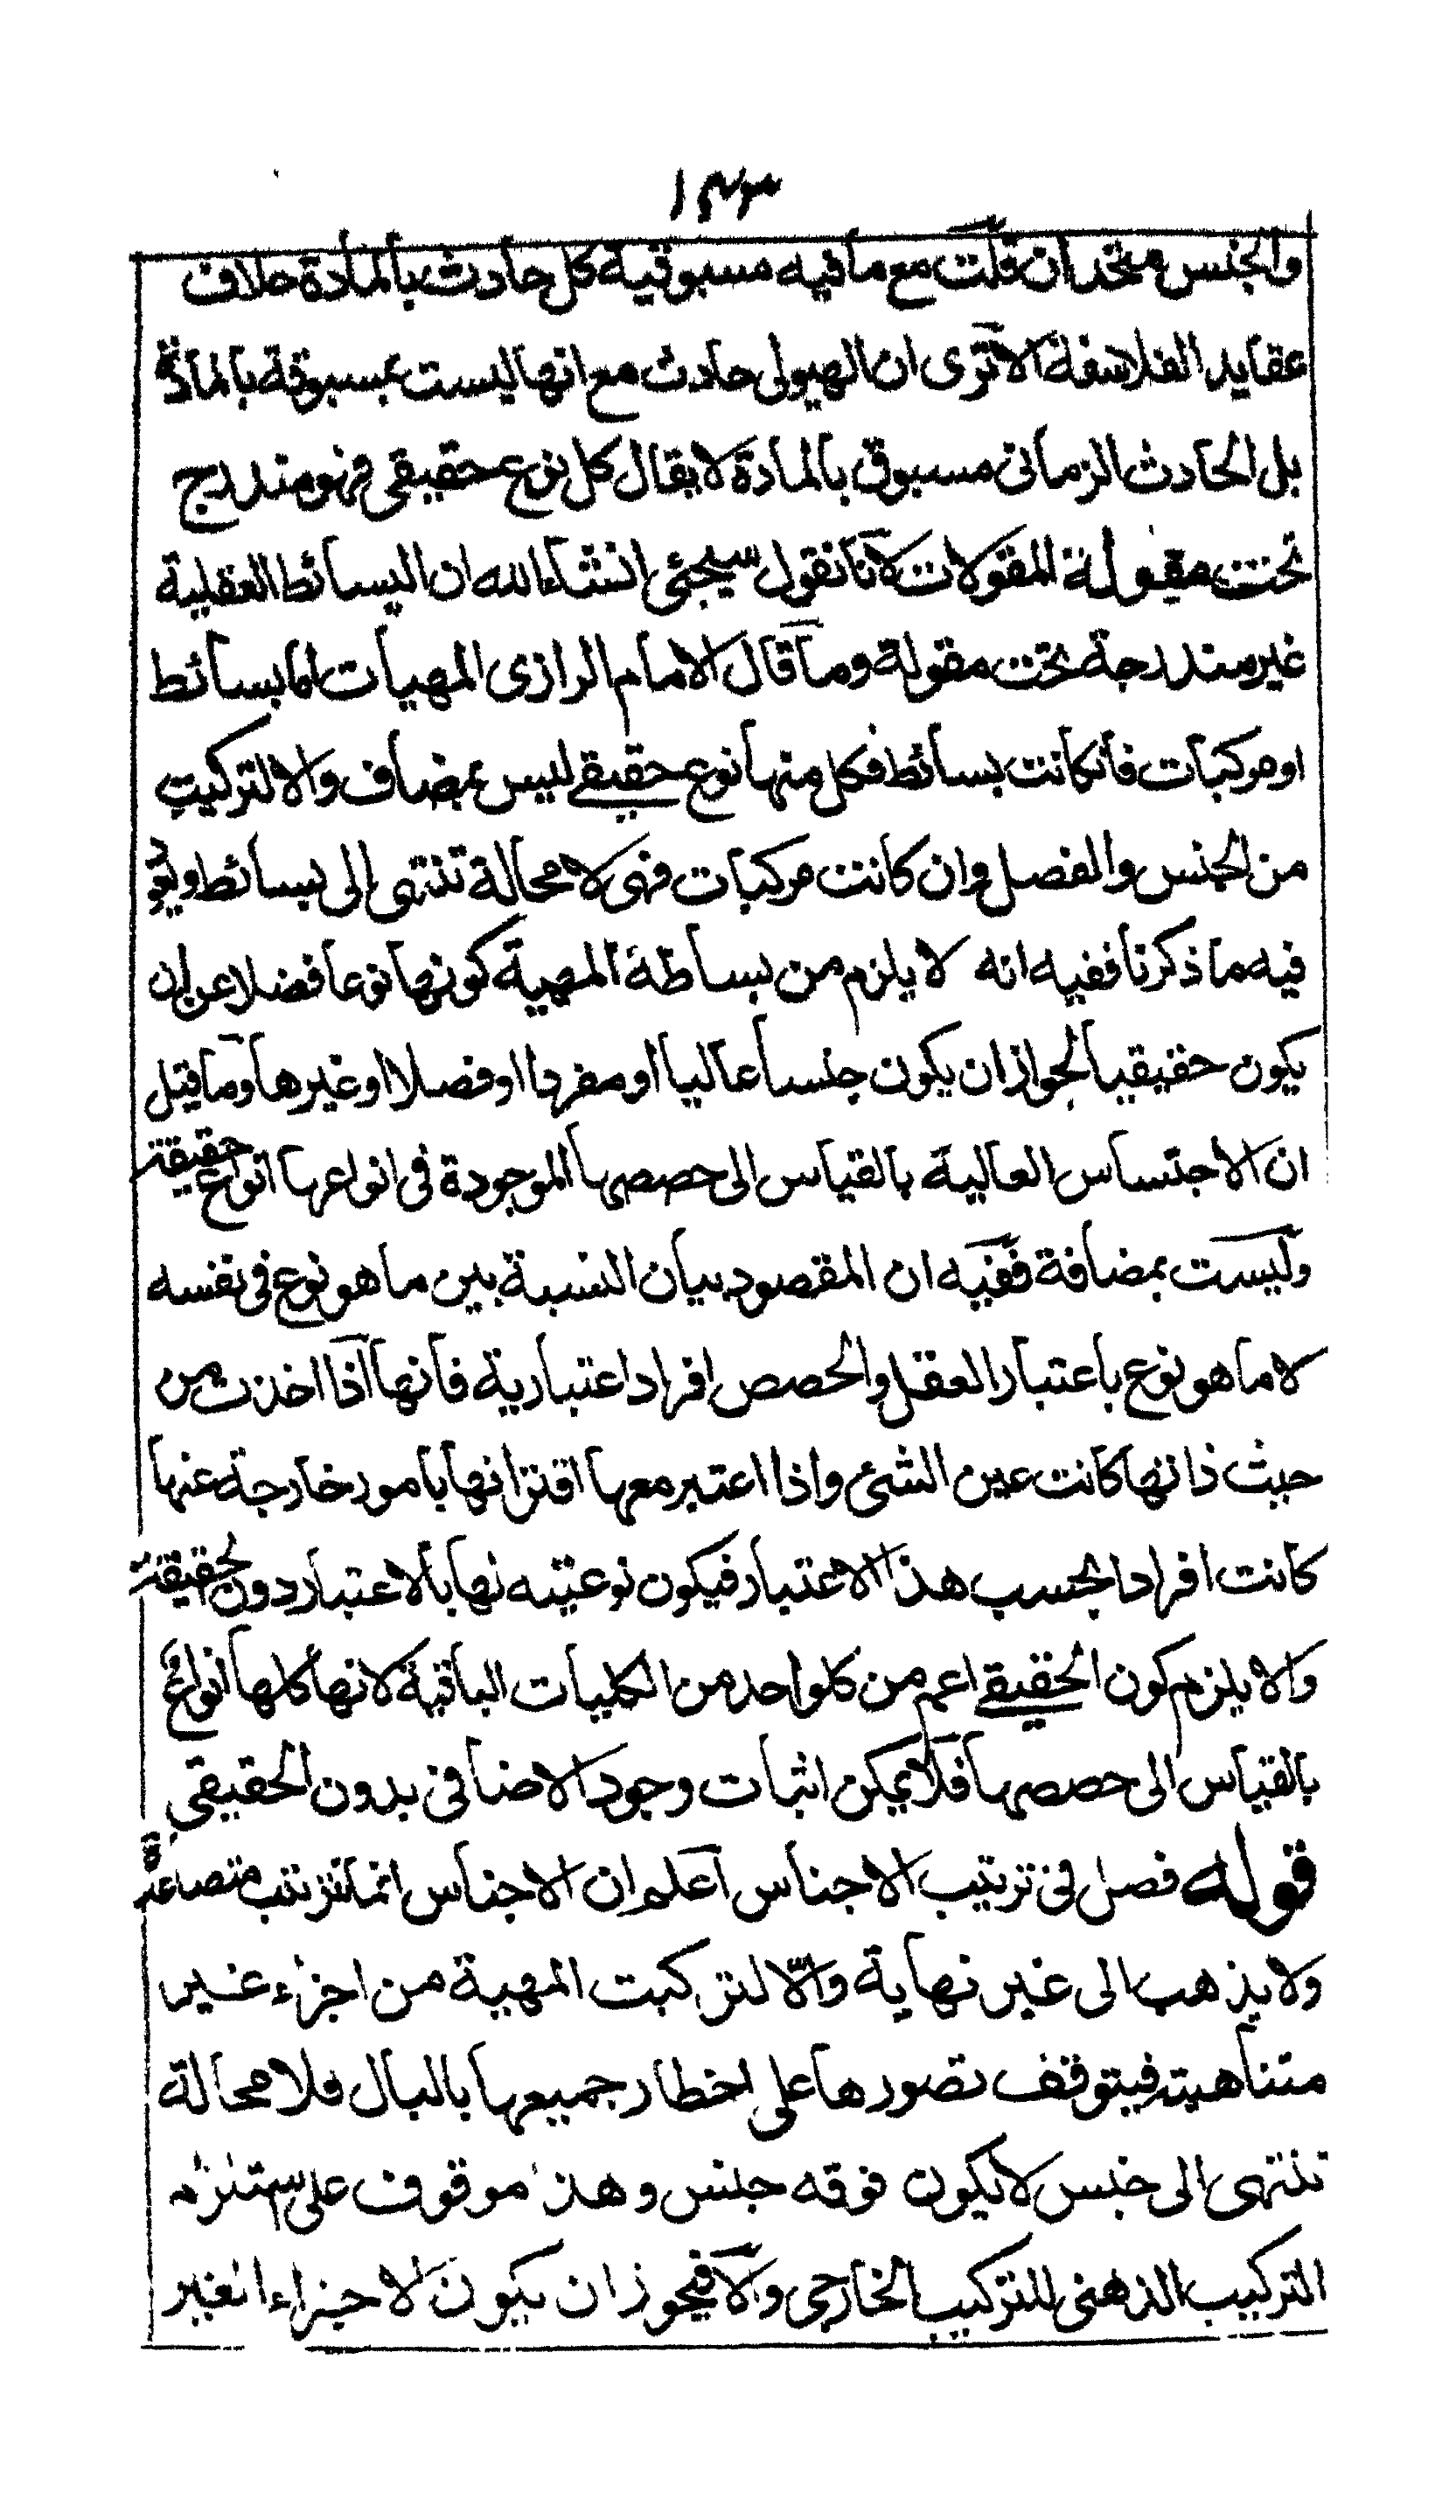 ١٤٣
والجنس متحدان قلت مع ما فيه مسبوقية كل حادث بالمادة خلاف
عقايد الفلاسفة الا ترى ان الهيولى حادث مع انها ليست بمسبوقة بالمادة
بل الحادث الزمانى مسبوق بالمادة لا يقال كل نوع حقيقى فهو مندرج
تحت مقولة المقولات لانا نقول سيجئ انشاء الله ان البسائط العقلية
غير مندرجة تحت مقولة وما قال الامام الرازى المهيات اما بسائط
او مركبات فانكانت بسائط فكل منها نوع حقيقى ليس بمضاف والا لتركيب
من الجنس والفصل وان كانت مركبات فهى لا محالة تنتهى الى بسائط ويعود
فيه ما ذكرنا ففيه انه لا يلزم من بساطة المهية كونها نوعا فضلا عن ان
يكون حقيقيا لجواز ان يكون جنسا عاليا او مفردا او فصلا او غيرها وما قيل
ان الاجناس العالية بالقياس الى حصصها الموجودة فى انواعها انواع حقيقة
وليست بمضافة ففيه ان المقصود بيان النسبة بين ما هو نوع فى نفسه
لا ما هو نوع باعتبار العقل والحصص افراد اعتبارية فانها اذا اخذت من
حيث ذاتها كانت عين الشئ واذا اعتبر معها اقترانها بامور خارجة عنها
كانت افرادا بحسب هذا الاعتبار فيكون نوعيته نها بالاعتبار دون لحقيقة
والا يلزم كون الحقيقى اعم من كلواحد من الكليات الباقية لانها كلها انواع
بالقياس الى حصصها فلا يمكن اثبات وجود الاضافى بدون الحقيقى
قوله فصل فى ترتيب الاجناس اعلم ان الاجناس انما تترتب متصاعدة
ولا يذهب الى غير نهاية والّا لتركبت المهية من اجزاء غير
متناهية فيتوقف تصورها على اخطار جميعها بالبال فلا محالة
تنتهى الى جنس لا يكون فوقه جنس وهذا موقوف على استلزام
التركيب الذهنى للتركيب الخارجى والا فيجوز ان يكون الاجزاء الغير